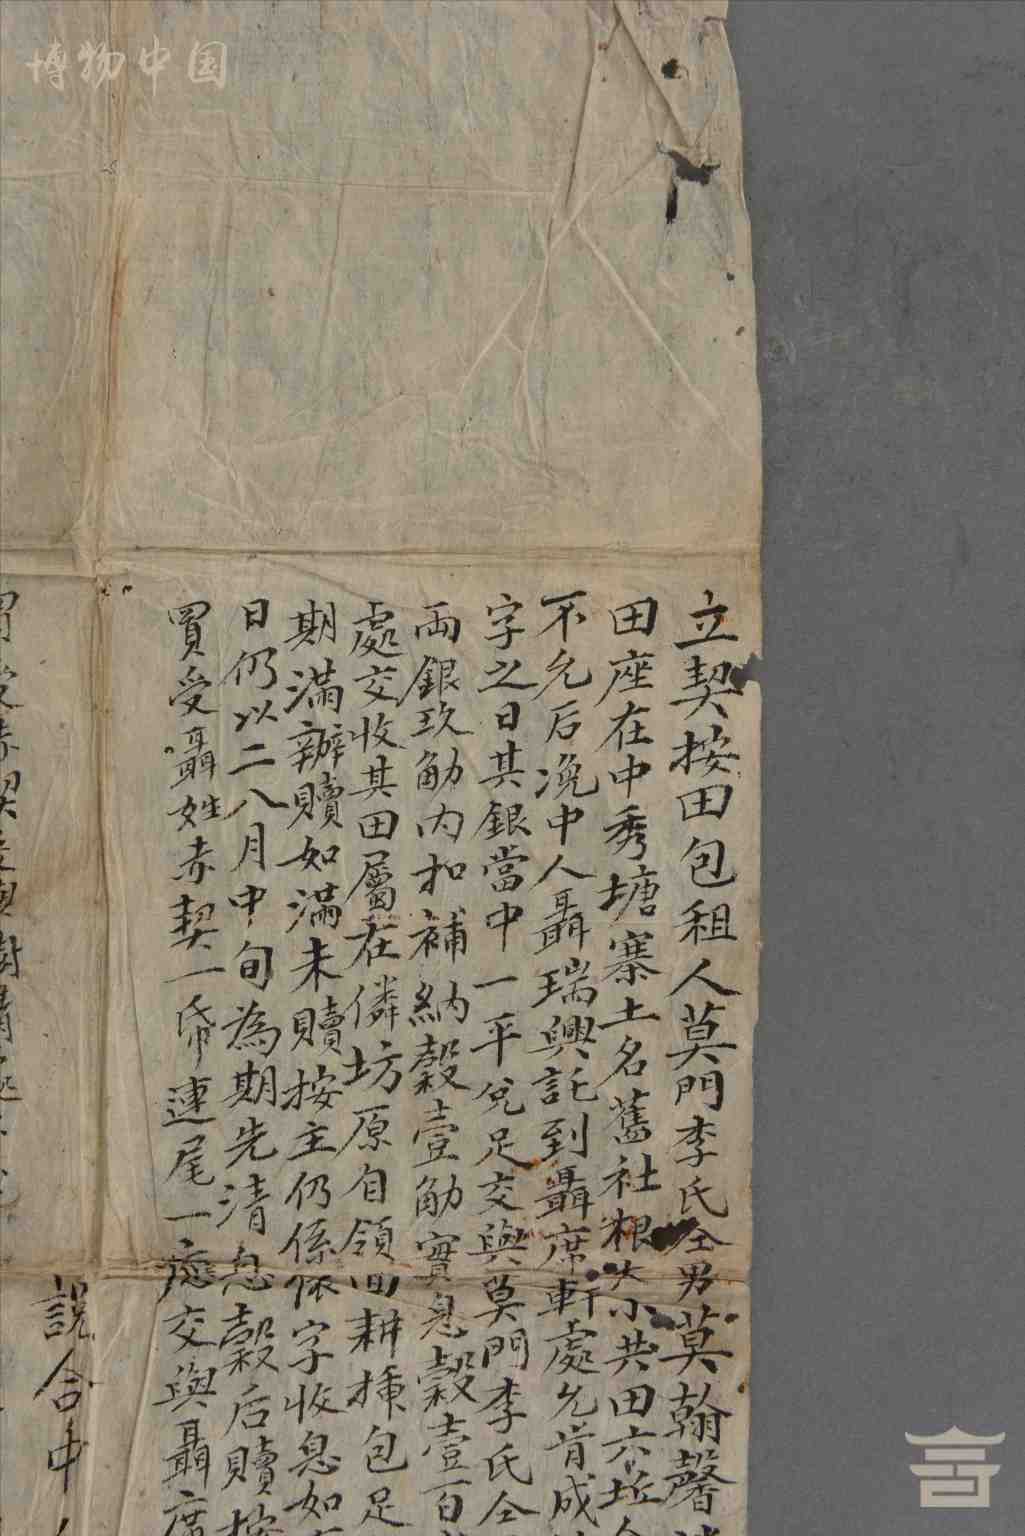 博物中国
立契按田包租人莫門李氏仝男莫翰馨
田座在中秀塘寨土名舊社根大小共田六坵
不允后浼中人聶瑞興託到聶席軒處允肯成
字之日其銀當中一平兌足交與莫門李氏仝
両銀玖觔内扣補納穀壹觔實息穀壹百
處交收其田屬在隣坊原自領回耕揷包足
期滿辦贖如滿未贖按主仍係依字收息如
日仍以二八月中旬為期先清息穀后贖按
買受聶姓赤契一帋連尾一㾗交與聶席
說合中人